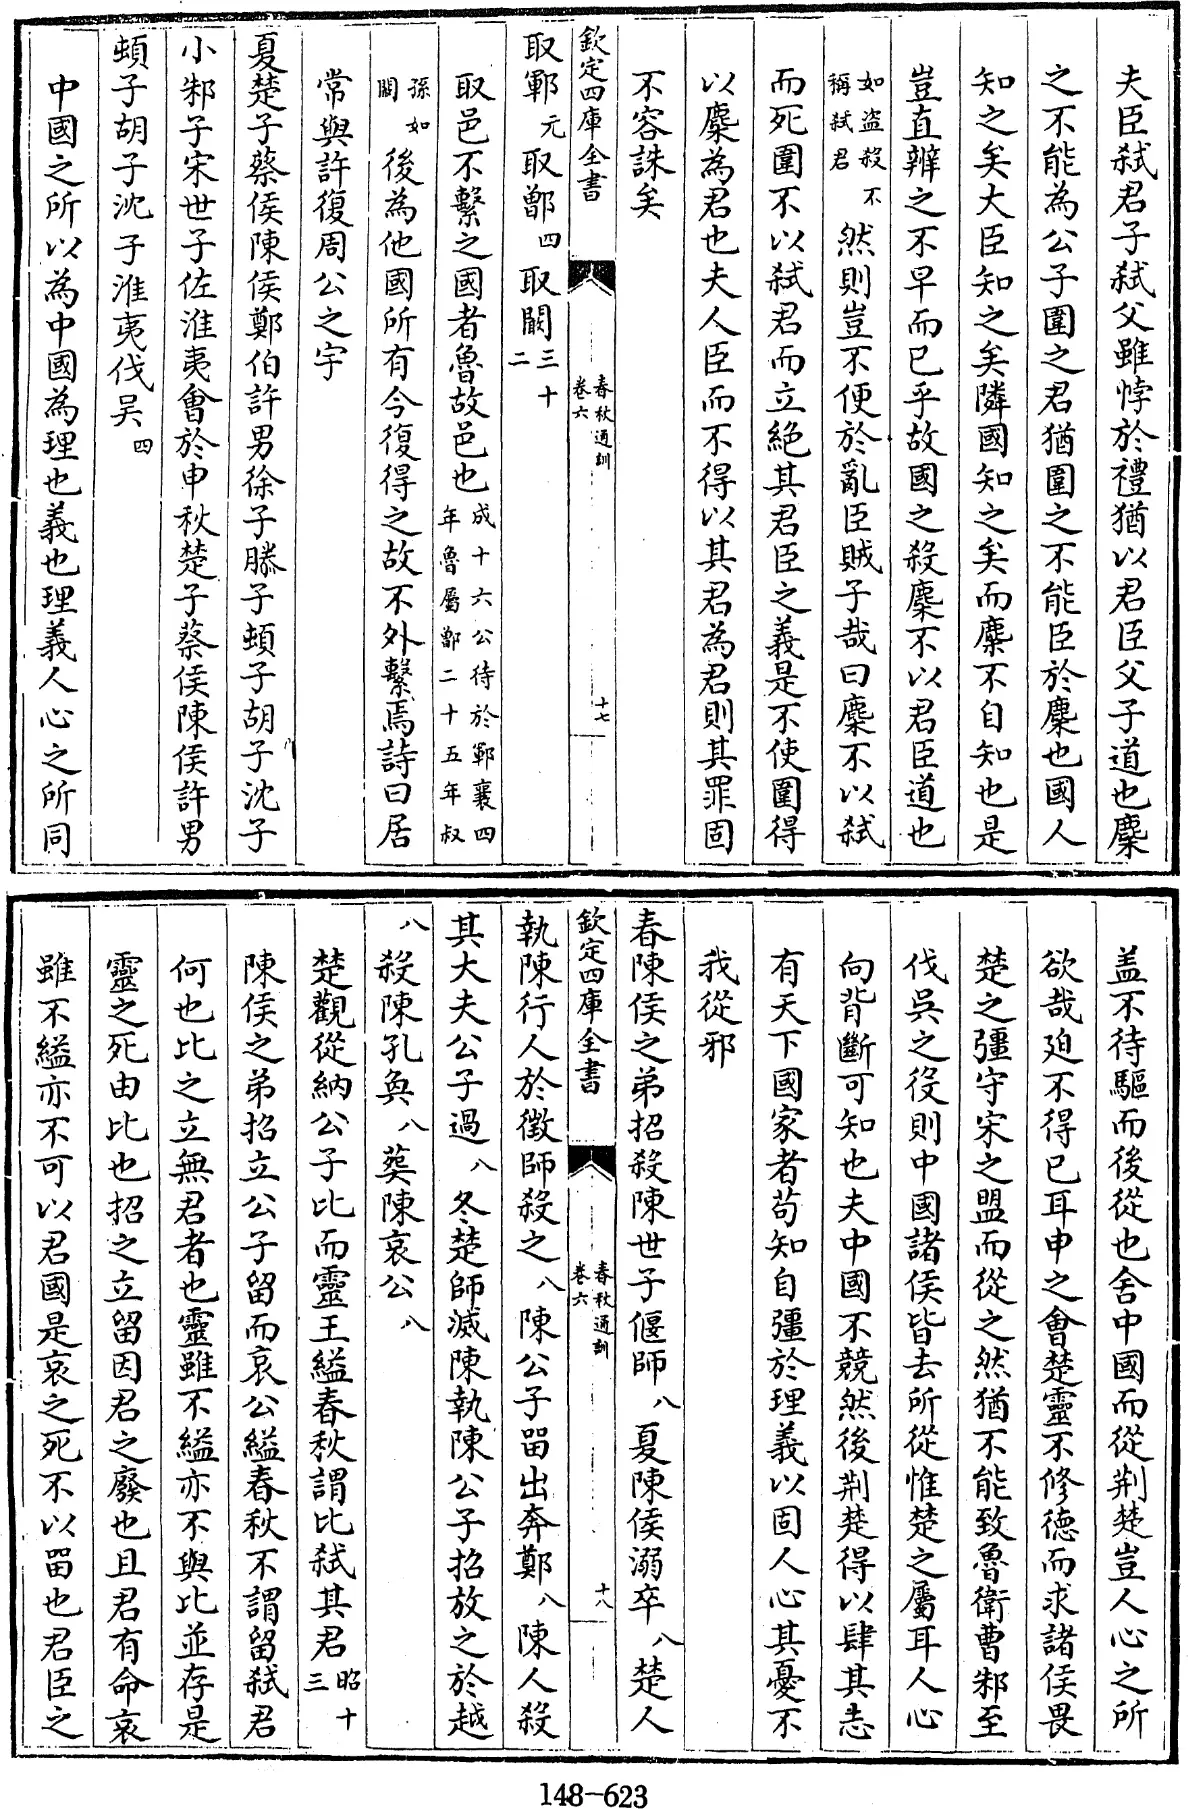 夫臣弑君子弑父雖悖於禮猶以君臣父子道也麇
之不能為公子圍之君猶圍之不能臣於麇也國人
知之矣大臣知之矣隣國知之矣而麇不自知也是
豈直辨之不早而已乎故國之殺麇不以君臣道也
如盗殺不
稱弑君
然則豈不便於亂臣賊子哉曰麇不以弑
而死圍不以弑君而立絶其君臣之義是不使圍得
以麇為君也夫人臣而不得以其君為君則其罪固
不容誅矣
欽定四庫全書
春秋通訓
卷六
十七
取鄆元取鄫四取闞三十
二
取邑不繫之國者魯故邑也
成十六公待於鄆襄四
年魯屬鄫二十五年叔
孫如
闞
後為他國所有今復得之故不外繫焉詩曰居
常與許復周公之宇
夏楚子蔡侯陳侯鄭伯許男徐子滕子頓子胡子沈子
小邾子宋世子佐淮夷會於申秋楚子蔡侯陳侯許男
頓子胡子沈子淮夷伐吴四
中國之所以為中國為理也義也理義人心之所同
盖不待驅而後從也舍中國而從荆楚豈人心之所
欲哉廹不得已耳申之會楚靈不修德而求諸侯畏
楚之彊守宋之盟而從之然猶不能致魯衛曹邾至
伐吳之役則中國諸侯皆去所從惟楚之屬耳人心
向背斷可知也夫中國不競然後荆楚得以肆其恚
有天下國家者苟知自彊於理義以固人心其憂不
我從邪
春陳侯之弟招殺陳世子偃師八夏陳侯溺卒八楚人
欽定四庫全書
春秋通訓
卷六
十八
執陳行人於徵師殺之八陳公子留出奔鄭八陳人殺
其大夫公子過八冬楚師滅陳執陳公子招放之於越
八殺陳孔奐八葬陳哀公八
楚觀從納公子比而靈王縊春秋謂比弑其君
昭十
三
陳侯之弟招立公子留而哀公縊春秋不謂留弑君
何也比之立無君者也靈雖不縊亦不與比並存是
靈之死由比也招之立留因君之廢也且君有命哀
雖不縊亦不可以君國是哀之死不以留也君臣之
148-623